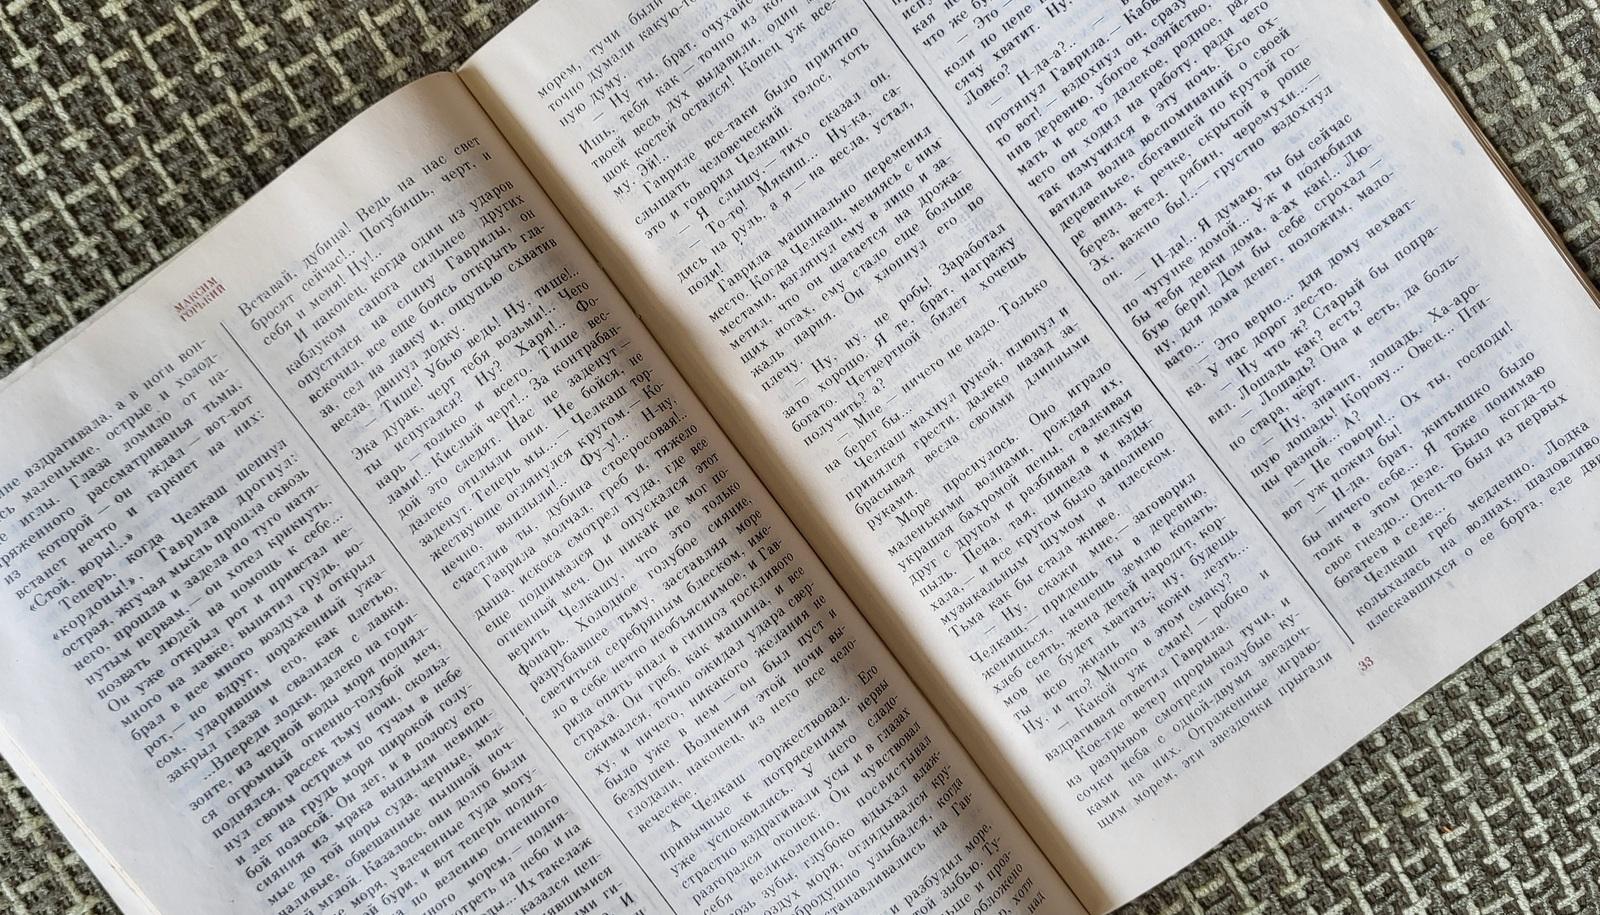 МАКСИМ
ГОРЬКИЙ
вздрагивала, а в ноги вон-
маленькие, острые и холод-
иглы. Глаза ломило от на-
рассматриванья тьмы,
из которой — он ждал — вот-вот
встанет нечто и гаркнет на них:
«Стой, воры!..»
Теперь, когда Челкаш шепнул
«кордоны!», Гаврила дрогнул:
острая, жгучая мысль прошла сквозь
него, прошла и задела по туго натя-
нутым нервам,— он хотел крикнуть,
позвать людей на помощь к себе...
Он уже открыл рот и привстал не-
много на лавке, выпятил грудь, во-
брал в нее много воздуха и открыл
рот,— но вдруг, пораженный ужа-
сом, ударившим его, как плетью,
закрыл глаза и свалился с лавки.
...Впереди лодки, далеко на гори-
зонте, из черной воды моря поднял-
ся огромный огненно-голубой меч,
поднялся, рассек тьму ночи, скольз-
нул своим острием по тучам в небе
и лег на грудь моря широкой голу-
бой полосой. Он лег, и в полосу его
сияния из мрака выплыли невиди-
мые до той поры суда, черные, мол-
чаливые, обвешанные пышной ноч-
ной мглой. Казалось, они долго были
моря, увлеченные туда могу-
бури, и вот теперь подня-
по велению огненного
морем,— подня-
на небо и на
Их такелаж
казался цеп-
Вставай, дубина! Ведь на нас свет
бросят сейчас!.. Погубишь, черт, и
себя и меня! Ну!..
И наконец, когда один из ударов
каблуком сапога сильнее других
опустился на спину Гаврилы, он
вскочил, все еще боясь открыть гла-
за, сел на лавку и, ощупью схватив
весла, двинул лодку.
— Тише! Убью ведь! Ну, тише!..
Эка дурак, черт тебя возьми!.. Чего
ты испугался? Ну? Харя!.. Фо-
нарь — только и всего. Тише вес-
лами!.. Кислый черт!.. За контрабан-
дой это следят. Нас не заденут —
далеко отплыли они. Не бойся, не
заденут. Теперь мы...— Челкаш тор-
жествующе оглянулся кругом.— Ко-
нечно, выплыли!.. Фу-у!.. Н-ну,
счастлив ты, дубина стоеросовая!..
Гаврила молчал, греб и, тяжело
дыша, искоса смотрел туда, где все
еще поднимался и опускался этот
огненный меч. Он никак не мог по-
верить Челкашу, что это только
фонарь. Холодное голубое сияние,
разрубавшее тьму, заставляя море
светиться серебряным блеском, име-
ло в себе нечто необъяснимое, и Гав-
рила опять впал в гипноз тоскливого
страха. Он греб, как машина, и все
сжимался, точно ожидал удара свер-
ху, и ничего, никакого желания не
было уже в нем — он был пуст и
бездушен. Волнения этой ночи вы-
глодали, наконец, из него все чело-
веческое.
А Челкаш торжествовал. Его
привычные к потрясениям нервы
уже успокоились. У него сладо-
страстно вздрагивали усы и в глазах
разгорался огонек. Он чувствовал
великолепно, посвистывал
зубы, глубоко вдыхал влаж-
воздух моря, оглядывался кру-
добродушно улыбался, когда
останавливались на Гав-
и разбудил море,
зыбью. Ту-
и проз-
обложено
хотя
над
морем, тучи были
точно думали какую-то
ную думу.
— Ну ты, брат, очухайся
Ишь, тебя как — точно из кожи-то
твоей весь дух выдавили, один ме-
шок костей остался! Конец уж все-
му. Эй!..
Гавриле все-таки было приятно
слышать человеческий голос, хоть
это и говорил Челкаш.
— Я слышу,— тихо сказал он.
— То-то! Мякиш... Ну-ка, са-
дись на руль, а я — на весла, устал,
поди!
Гаврила машинально переменил
место. Когда Челкаш, меняясь с ним
местами, взглянул ему в лицо и за-
метил, что он шатается на дрожа-
щих ногах, ему стало еще больше
жаль парня. Он хлопнул его по
плечу.
— Ну, ну, не робь! Заработал
зато хорошо. Я те, брат, награжу
богато. Четвертной билет хочешь
получить? а?
— Мне — ничего не надо. Только
на берег бы...
Челкаш махнул рукой, плюнул и
принялся грести, далеко назад за-
брасывая весла своими длинными
руками.
Море проснулось. Оно играло
маленькими волнами, рождая их,
украшая бахромой пены, сталкивая
друг с другом и разбивая в мелкую
пыль. Пена, тая, шипела и взды-
хала,— и все кругом было заполнено
музыкальным шумом и плеском.
Тьма как бы стала живее.
— Ну, скажи мне,— заговорил
Челкаш,— придешь ты в деревню,
женишься, начнешь землю копать,
хлеб сеять, жена детей нарожает, кор-
мов не будет хватать; ну, будешь
ты всю жизнь из кожи лезть...
Ну, и что? Много в этом смаку?
— Какой уж смак! — робко и
вздрагивая ответил Гаврила.
Кое-где ветер прорывал тучи, и
из разрывов смотрели голубые ку-
сочки неба с одной-двумя звездоч-
ками на них. Отраженные играю-
щим морем, эти звездочки прыгали
что же бу
— Это
коли по цене
сячу хватит. Ну,
Ловко?
— Н-да-а?..
протянул Гаврила.— Кабы
то вот! — вздохнул он, сразу
нив деревню, убогое хозяйство,
мать и все то далекое, родное, ради
чего он ходил на работу, ради чего
так измучился в эту ночь. Его ох-
ватила волна воспоминаний о своей
деревеньке, сбегавшей по крутой го-
ре вниз, к речке, скрытой в роще
берез, ветел, рябин, черемухи...
Эх, важно бы!..— грустно вздохнул
он.
— Н-да!.. Я думаю, ты бы сейчас
по чугунке домой... Уж и полюбили
бы тебя девки дома, а-ах как!.. Лю-
бую бери! Дом бы себе сгрохал —
ну, для дома денег, положим, мало-
вато...
— Это верно... для дому нехват-
ка. У нас дорог лес-то.
— Ну что ж? Старый бы попра-
вил. Лошадь как? есть?
— Лошадь? Она и есть, да боль-
но стара, черт.
— Ну, значит, лошадь. Ха-аро-
шую лошадь! Корову... Овец... Пти-
цы разной... А?
— Не говори!.. Ох ты, господи!
вот уж пожил бы!
— Н-да, брат, житьишко было
бы ничего себе... Я тоже понимаю
толк в этом деле. Было когда-то
свое гнездо... Отец-то был из первых
богатеев в селе...
Челкаш греб медленно. Лодка
колыхалась на волнах, шаловливо
плескавшихся о ее борта, еле
33